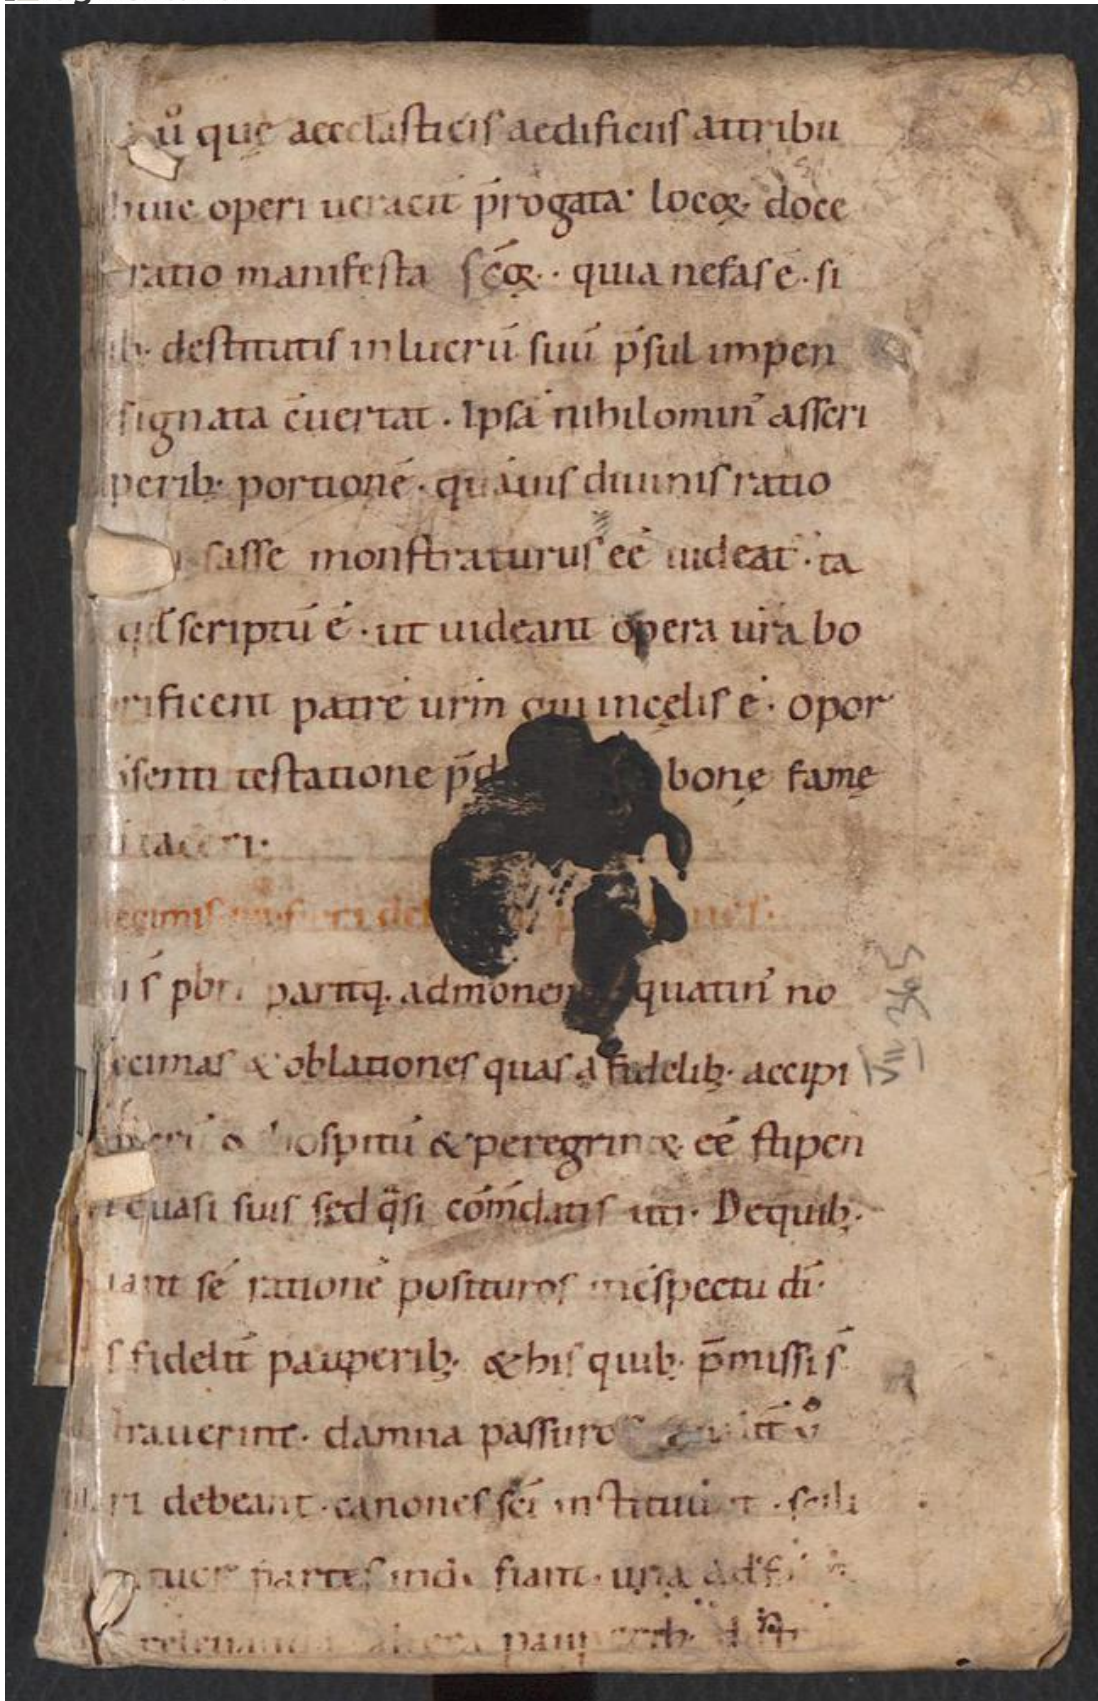 ů quę aecclasticis aedificiis attribu
huic operi ueracit p̄rogata· locoꝝ· doce
ratio manifesta sc̄oꝝ·· quia nefas ē· si
ib· destitutis in lucrū suū p̄sul impen
signata ēuertat· Ipsā nihilomin᷒ asseri
perib· portionē· quāuis diuinis ratio
sasse monstraturus eē uideat᷒· ta
qd̄ scriptū ē· ut uideant opera ura bo
rificent patrē urm̄ qui in cęlis ē· opor
senti testatione p̄d bonę famę
taceri·
egimus
s̄ pbri paritq· admonen quatin᷒ no
ecimas & oblationes quas a fidelib· accipi
& hospitū & peregrinoꝝ· eē stipen
quasi suis sed q̄si com̄datis uti· De quib·
ant sē rationē posituros in c̄spectu dī·
s fidelit̄ pauperib· & his quib· p̄missis
trauerint· damna passuros ů
ri debeant· canones sc̄i instituunt· scili
tuor partes inde fiant· una ad
altera pauperib·
VII 365